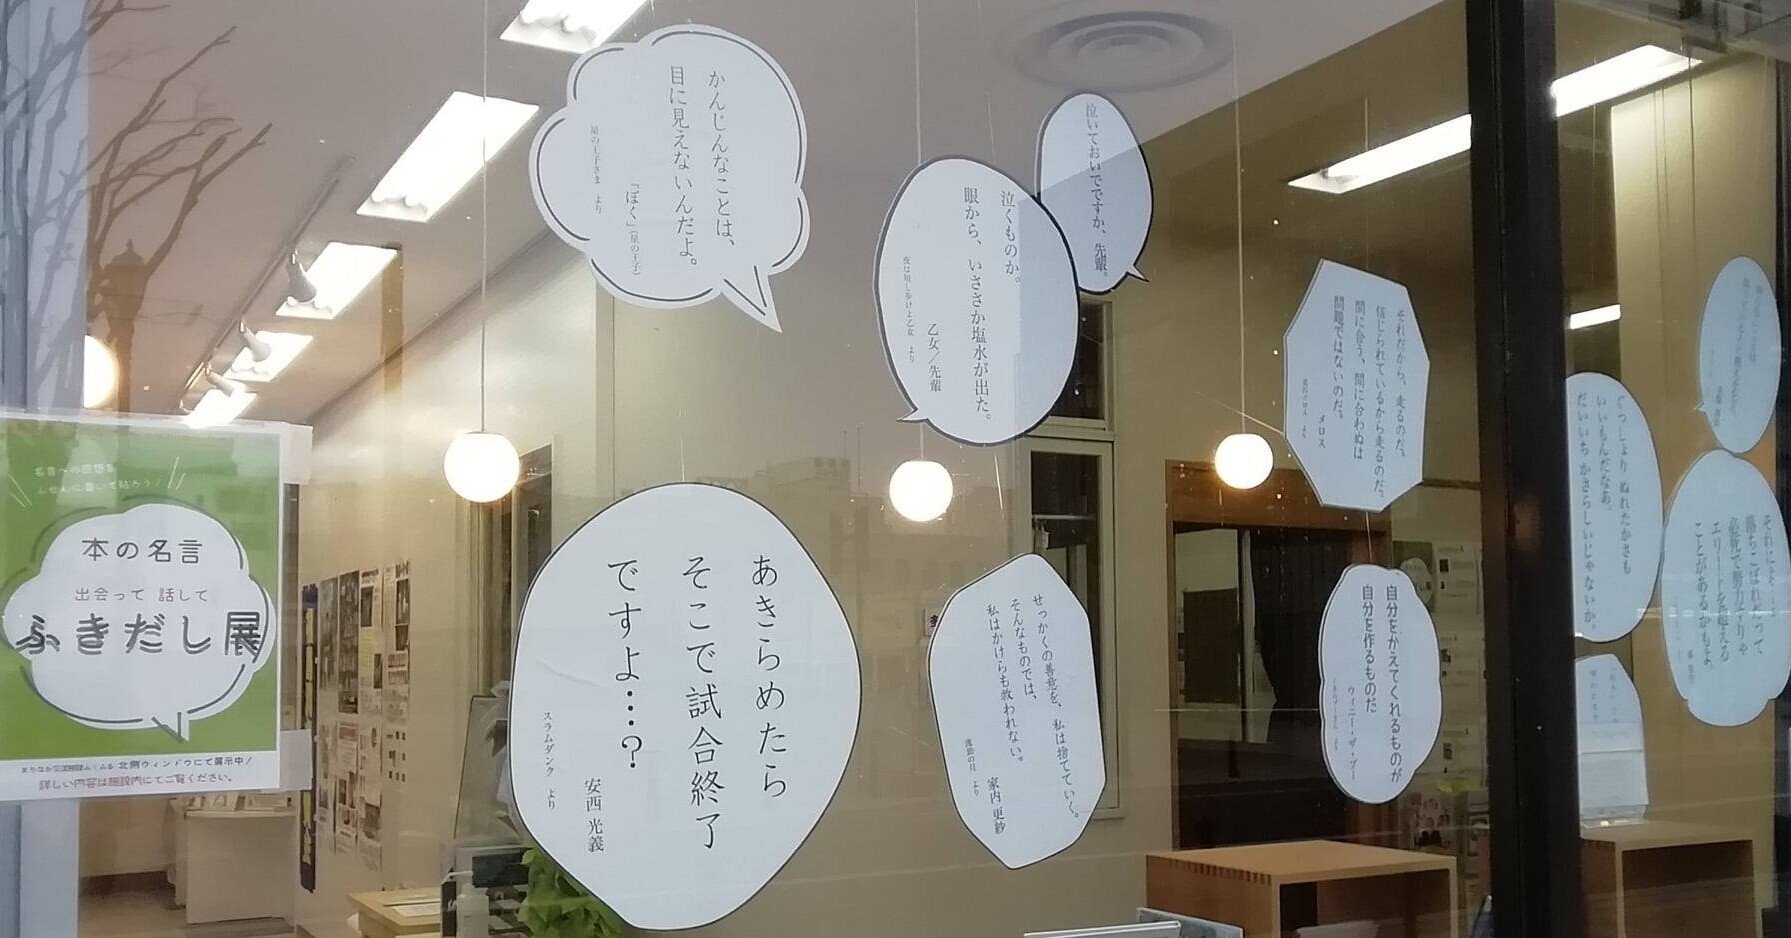 名言への感想を
ふせんに書いて貼ろう！
本の名言
出会って 話して
ふきだし展
北側ウィンドウにて展示中！
詳しい内容は施設内にてご覧ください。
かんじんなことは、
目に見えないんだよ。
「ぼく」（星の王子）
星の王子さま より
泣いておいでですか、先輩。
泣くものか。
眼から、いささか塩水が出た。
乙女／先輩
夜は短し歩けよ乙女 より
それだから、走るのだ。
信じられているから走るのだ。
間に合う、間に合わぬは
問題ではないのだ。
メロス
走れメロス より
あきらめたら
そこで試合終了
ですよ…？
安西 光義
スラムダンク より
せっかくの善意を、私は捨てていく。
そんなものでは、
私はかけらも救われない。
家内 更紗
流浪の月 より
自分をかえてくれるものが
自分を作るものだ
ウィニー・ザ・プー
ぐっしょり ぬれたかさも
いいもんだなあ。
だいいち かさらしいじゃないか。
それによ…
落ちこぼれだって
必死で努力すりゃ
エリートを超える
ことがあるかもよ。